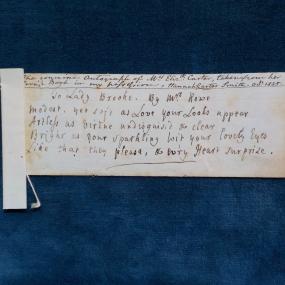 The genuine Autograph of Mrs. Eliz. Carter, taken from her
Book in my possession, Hannah Smith
To Lady Brooke. By Mrs. Rowe
Modest, yet soft as Love your Looks appear
Artless as Virtue undisguis'd & clear
Bright as your sparkling Wit your lovely Eyes
Like that they please, & every Heart surprise.